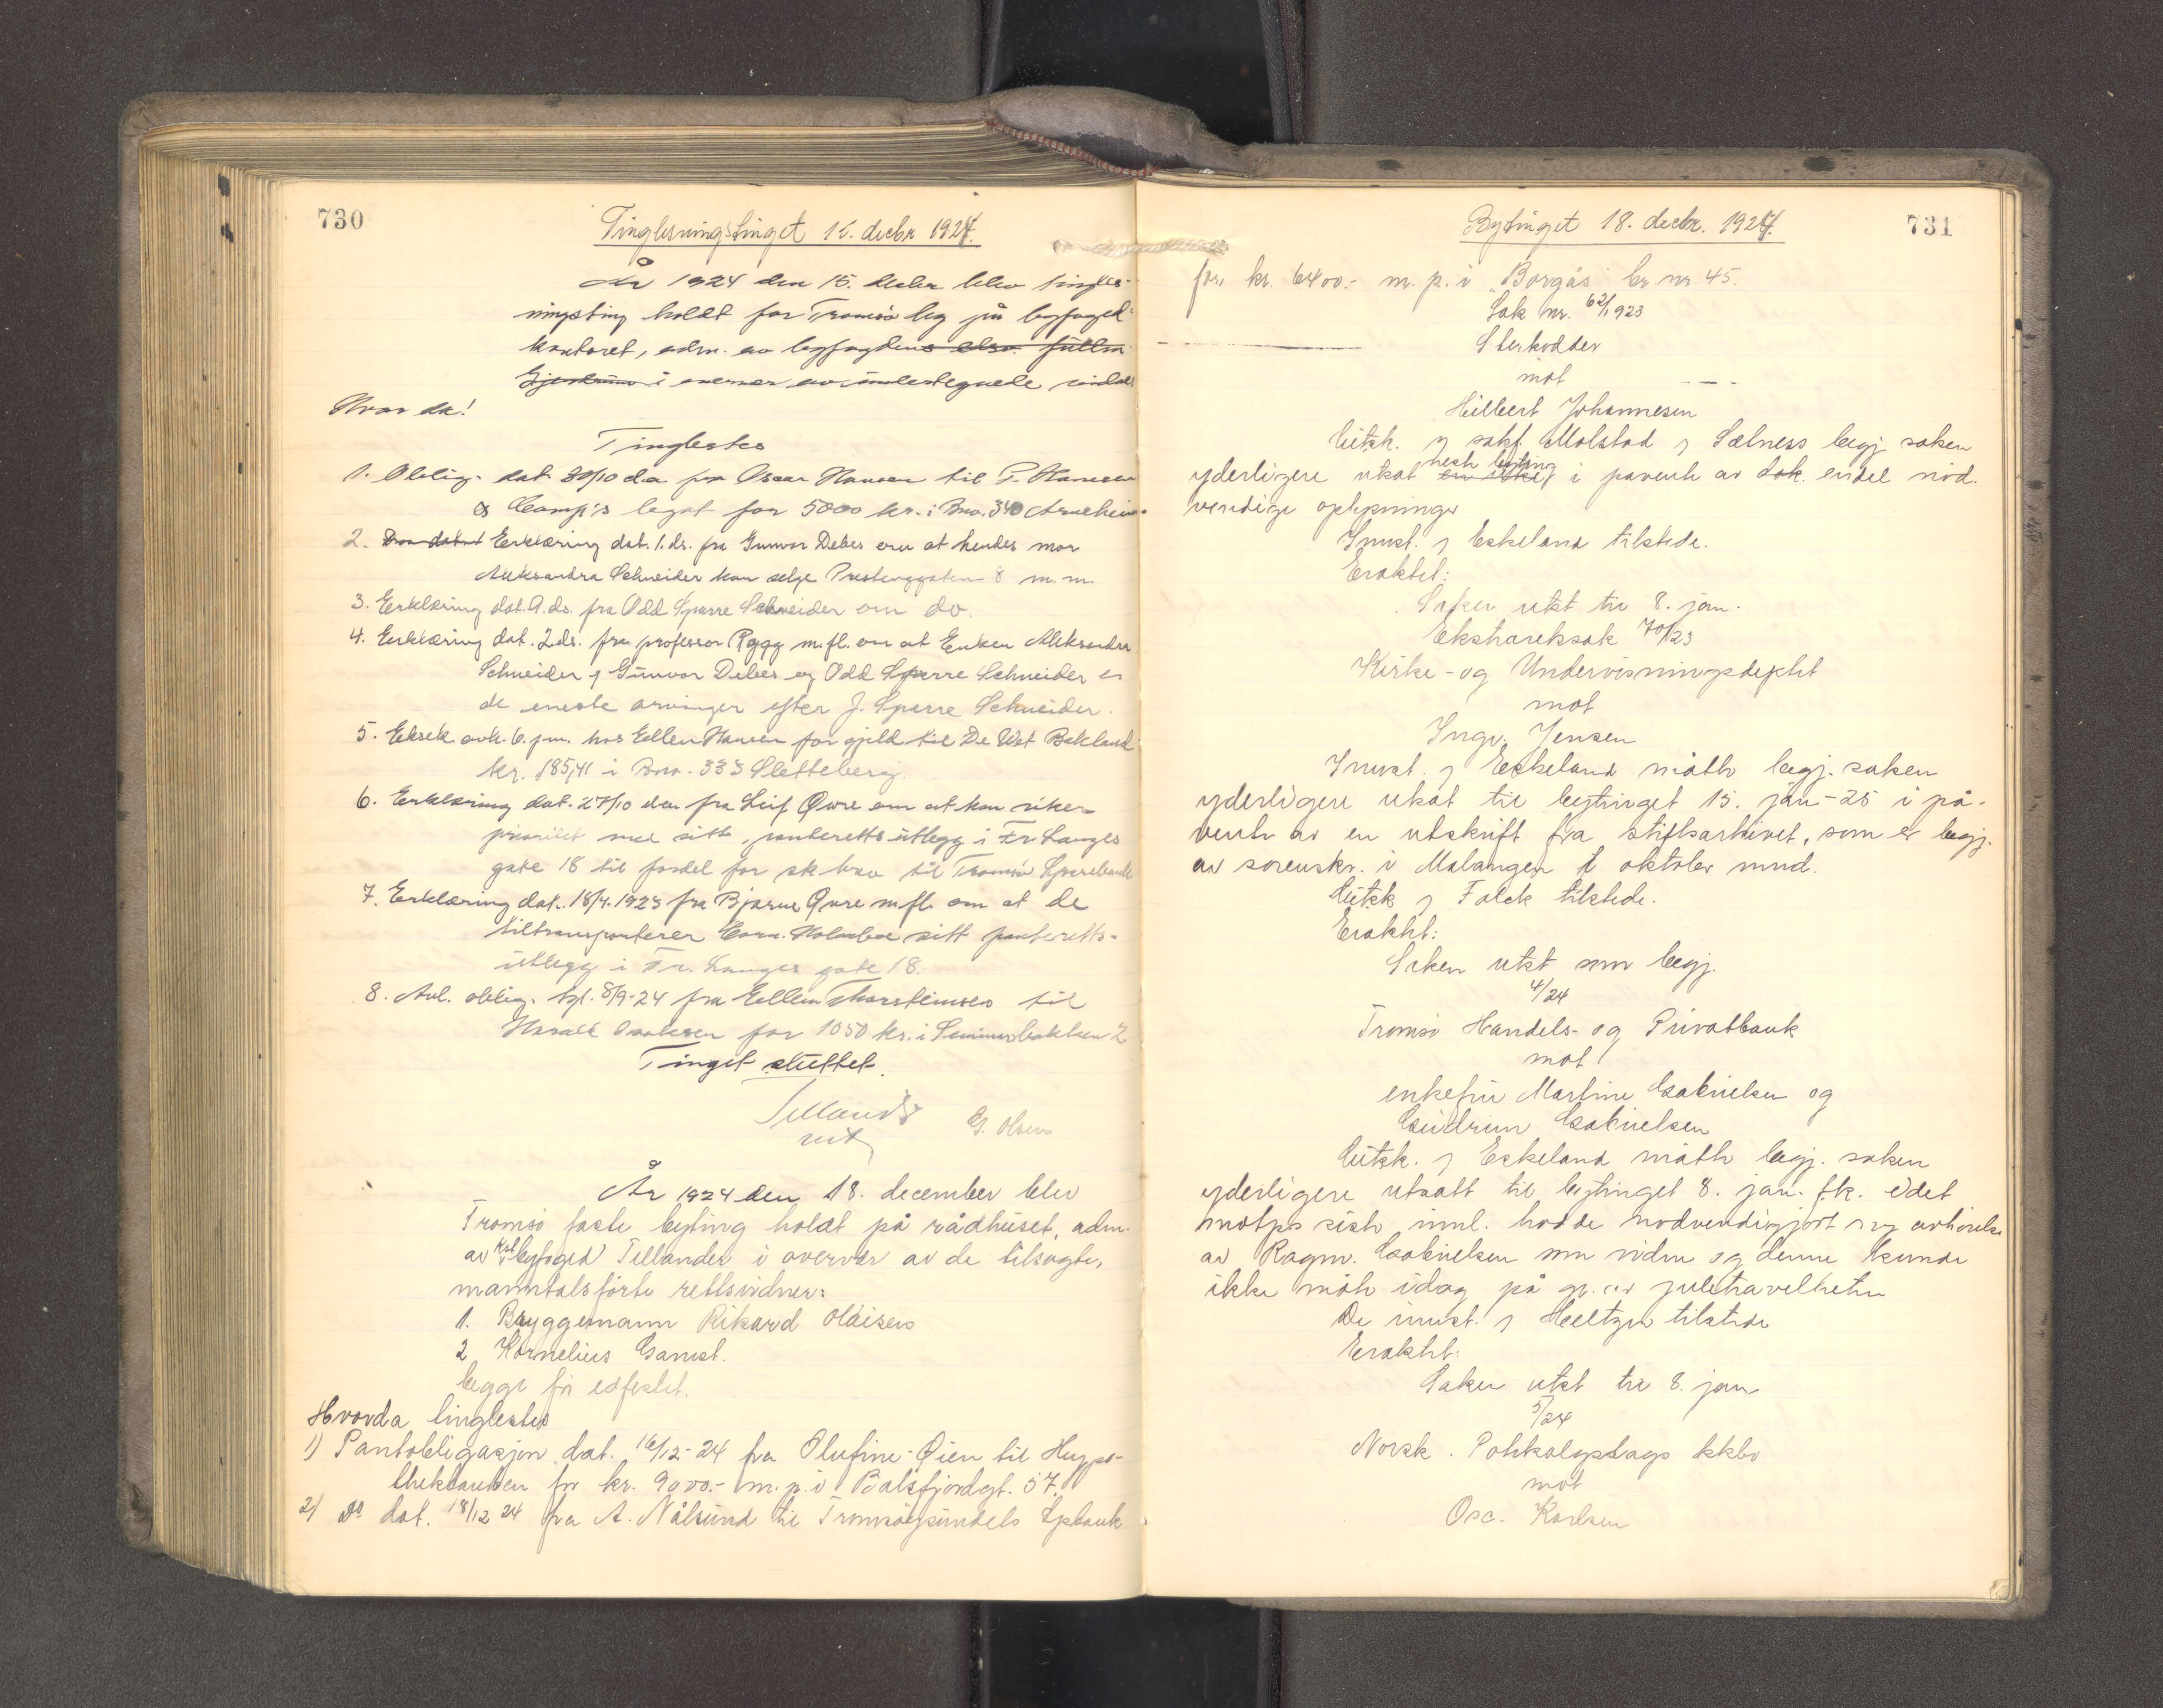 730
Tinglesningstinget 15. decbr 1924.
År 1924 den 15. decbr blev tingles-
ningsting holdt for Tromsø by på byfoged-
kontoret, adm. av byfogden
i overvær av undertegnede vidne
Hvor da!
Tinglestes
1. Oblig. dat. 30/10 d.a. fra Oscar Hansen til P. Hansen
& Comp's legat for 5000 kr. i Bno. 340 Arneheim.
2. Erklæring dat. 1. ds. fra Gunvor Debes om at hendes mor
Aleksandra Schneider kan selge Prestenggaten 8 m.m.
3. Erklæring dat. 9. ds. fra Odd Sparre Schneider om do.
4. Erklæring dat. 2 ds. fra professor Rygg m.fl. om at Enken Aleksandra
Schneider, Gunvor Debes og Odd Sparre Schneider er
de eneste arvinger efter J. Sparre Schneider.
5. Eksek. avh. 6. f.m. hos Ellen Hansen for gjeld til De Wet Bakland
kr. 185,41 i Bno. 333 Sletteberg.
6. Erklæring dat. 27/10 d.a. fra Leif Qvre om at han viker
prioritet med sitt panteretts utlegg i Fr. Langes
gate 18 til fordel for til Tromsø Sparebank
7. Erklæring dat. 18/4. 1923 fra Bjarne Qvre m.fl. om at de
tiltransporterer Conr. Holmboe sitt panteretts-
utlegg i Fr. Langes gate 18.
8. Avl. oblig. tgl. 8/9-24 fra Ellen Thorsteinsen til
Harald Isaksen for 1050 kr. i Seminarbakken 2
Tinget sluttet.
Tellander
G. Olsen
År 1924 den 18. december blev
Tromsø faste byting holdt på rådhuset, adm.
av kst byfoged Tellander i overvær av de tilsagte,
manntalsførte rettsvidner:
1. Bryggemann Rikard Olaisen
2 Kornelius Gamst.
begge før edfestet.
Hvorda tinglestes
1) Pantobligasjon dat. 16/12-24 fra Olufine Øien til Hypo-
thekbanken for kr. 9000.- m. p. i Balsfjordgt. 57.
2) do dat. 18/12 24 fra A. Nålsund til Tromsøysundels Spbank
Bytinget 18. decbr. 1924.
731
for kr. 6400.- m. p. i "Borgås" br nr 45.
Sak nr. 62/1923
Sterkodder
mot
Hilbert Johannesen
Citsk. v sakf. Molstad v Sælness begj saken
yderligere utsat neste byting i påvente av endel nød.
vendige oplysninger
Innst. v Eskeland tilstede.
Eraktet:
Saken utst til 8. jan.
Ekstraretssak 70/23
Kirke- og Undervisningsdeptet
mot
Ingv. Jensen
Innst. v Eskeland møtte begj. saken
yderligere utsat til bytinget 15. jan-25 i på-
vente av en utskrift fra stiftsarkivet, som er begj.
av sorenskr. i Malangen i oktober mnd.
Citsk v Falck tilstede.
Eraktet:
Saken utst som begj.
4/24
Tromsø Handels- og Privatbank
mot
enkefru Martine Gabrielsen og
Gudrun Gabrielsen
Citsk. v Eskeland møtte begj. saken
yderligere utsatt til bytinget 8. jan. f.k. idet
motps siste innl. hadde nødvendiggjort avhørelse
av Ragnv. Gabrielsen som vidne og denne kunde
ikke møte idag på gr. av juletravelheten
De innst. v Heeltzen tilstede
Eraktet:
Saken utst til 8. jan
5/24
Norsk.
mot
Osc. Karlsen